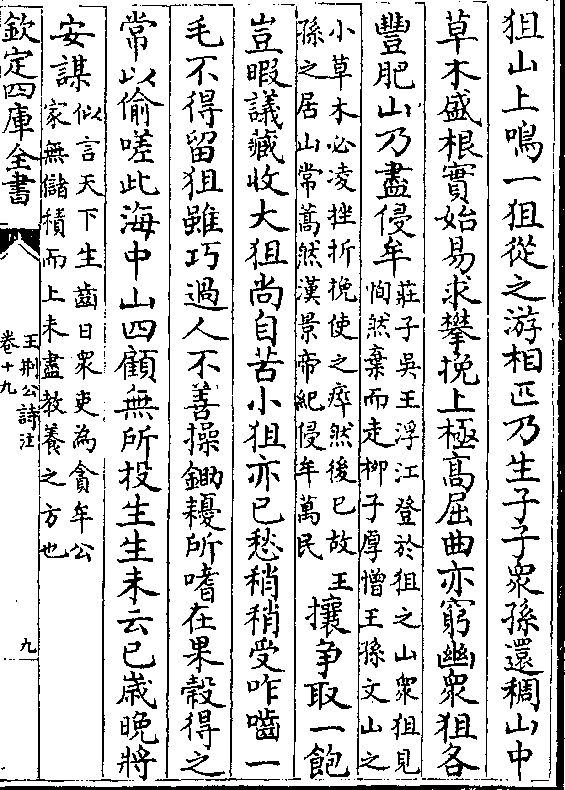 狙山上鳴一狙從之游相匹乃生子子衆孫還稠山中
草木盛根實始易求攀挽上極高屈曲亦窮幽衆狙各
豐肥山乃盡侵牟
莊子吳王浮江登於狙之山衆狙見
恂然棄而走柳子厚憎王孫文山之
小草木必凌挫折挽使之瘁然後已故王
孫之居山常蒿然漢景帝紀侵牟萬民
攘爭取一飽
豈暇議藏收大狙尚自苦小狙亦已愁稍稍受咋嚙一
毛不得留狙雖巧過人不善操鋤耰所嗜在果糓得之
常以偷嗟此海中山四顧無所投生生未云已歲晚將
安謀
似言天下生齒日衆吏為貪牟公
家無儲積而上未盡教養之方也
欽定四庫全書
王荆公詩注
卷十九
九